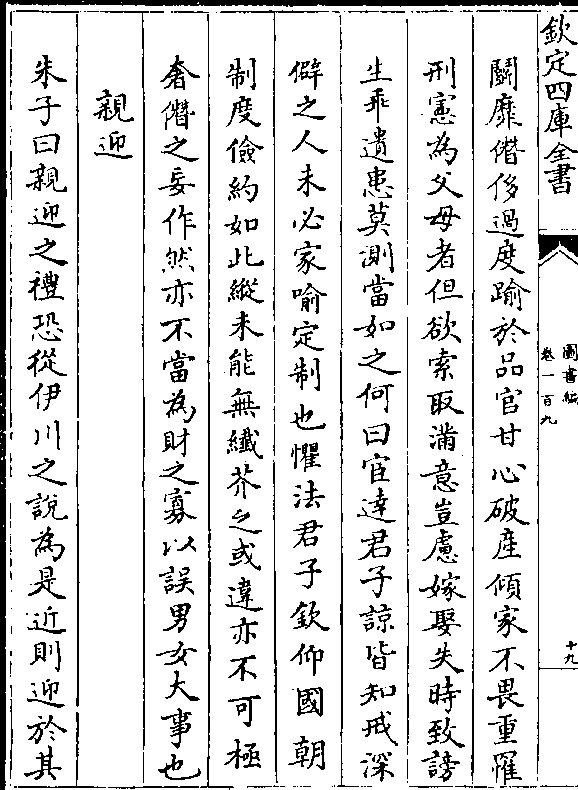 欽定四庫全書
圖書編
卷一百九
十九
鬬靡僭侈過度踰於品官甘心破産傾家不畏重罹
刑憲為父母者但欲索取滿意豈慮嫁娶失時致謗
生乖遺患莫測當如之何曰宦逹君子諒皆知戒深
僻之人未必家喻定制也懼法君子欽仰國朝
制度儉約如此縱未能無纎芥之或違亦不可極
奢僭之妄作然亦不當為財之寡以誤男女大事也
親迎
朱子曰親迎之禮恐從伊川之說為是近則迎於其